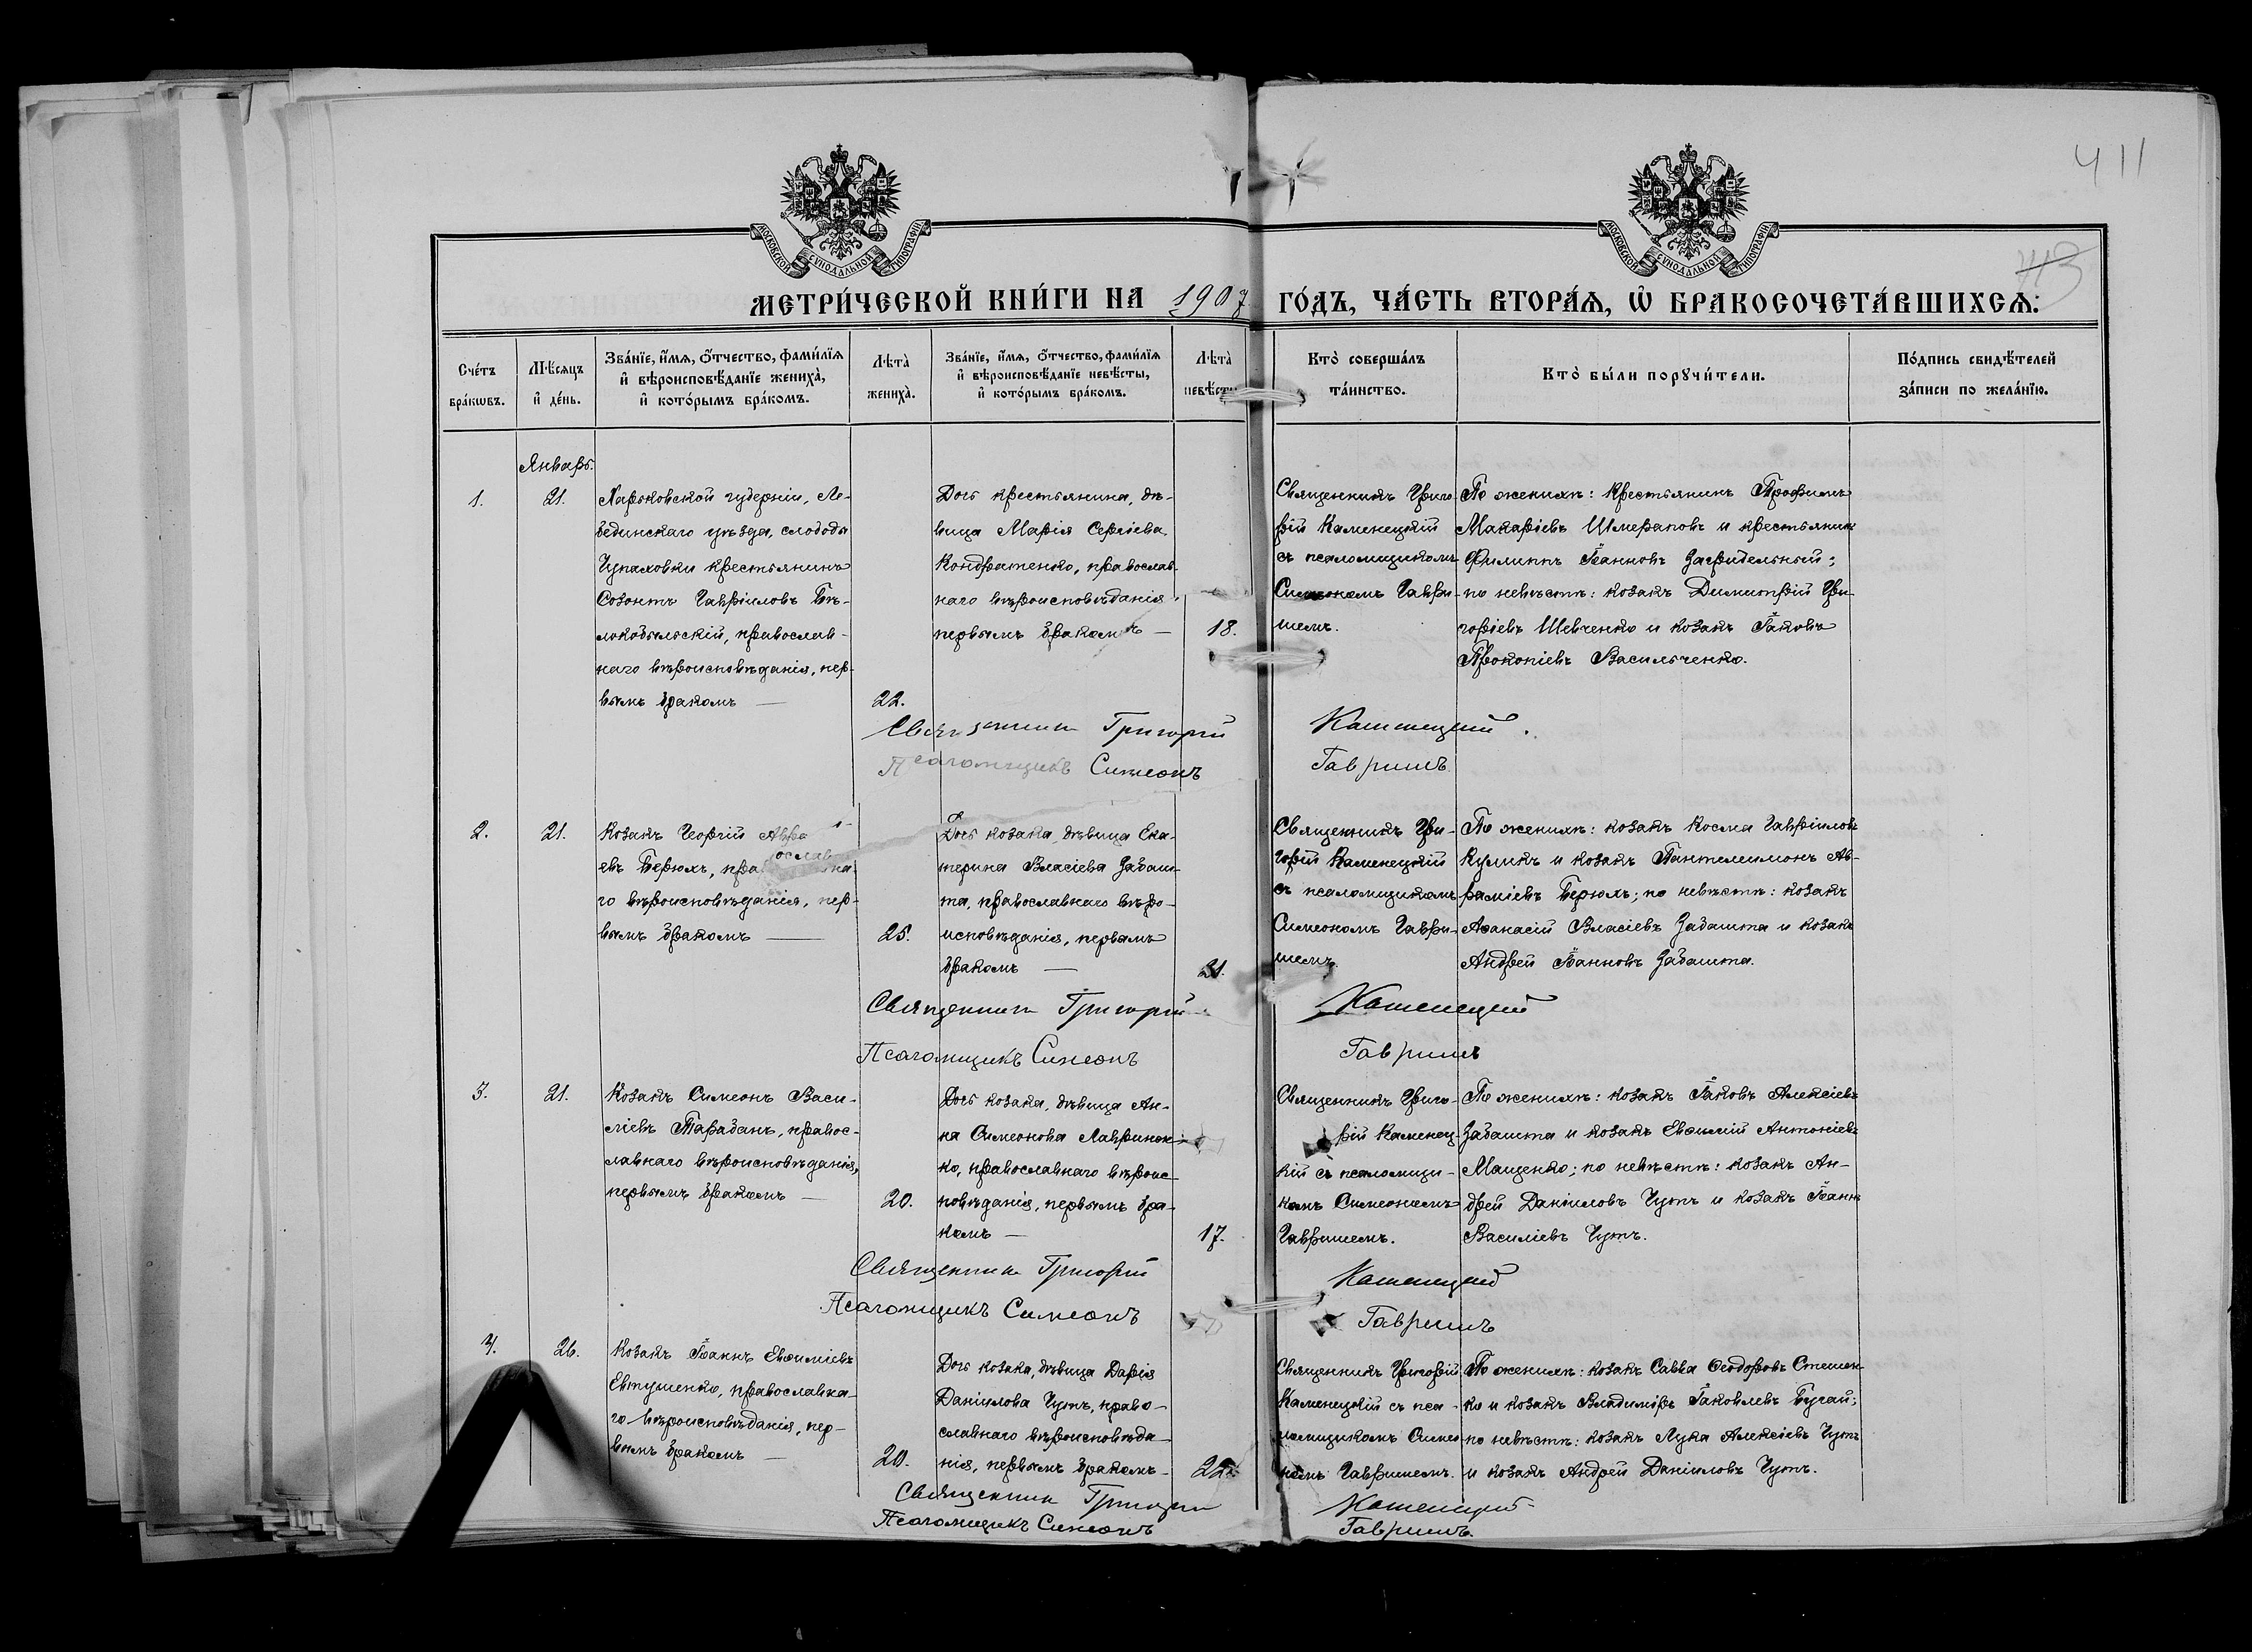 411
413
МОСКОВСКОЙ СѴНОДАЛЬНОЙ ТИПОГРАФІИ
МОСКОВСКОЙ СѴНОДАЛЬНОЙ ТИПОГРАФІИ
МЕТРИ́ЧЕСКОЙ КНИ́ГИ НА 1907 ГО́ДЪ, ЧА́СТЬ ВТОРА́Я, Ѡ҆ БРАКОСОЧЕТА́ВШИХСѦ:
Сче́тъ
бра́кѡвъ.
Мѣ́сяцъ
и҆ де́нь.
Зва́нїе, и҆́мѧ, ѻ҆́тчество, фами́лїѧ
и҆ вѣроисповѣ́данїе жениха̀,
и҆ кото́рымъ бра́комъ.
Лѣ́та̀
жениха̀.
Зва́нїе, и҆́мѧ, ѻ҆́тчество, фами́лїѧ
и҆ вѣроисповѣ́данїе невѣ́сты,
и҆ кото́рымъ бра́комъ.
Лѣ́та̀
невѣ́сты
Кто̀ соверша́лъ
та́инство.
Кто̀ бы́ли порꙋчи́тели.
По́дпись свидѣ́телей
за́писи по жела́нїю.
Январь.
1.
21.
Харьковской губерніи, Ле-
бединскаго уѣзда, слободы
Чупаховки крестьянинъ
Созонтъ Гавріиловъ Бѣ-
локобыльскій, православ-
наго вѣроисповѣданія, пер-
вымъ бракомъ —
22.
Дочь крестьянина, дѣ-
вица Марія Сергіева
Кондратенко, православ-
наго вѣроисповѣданія,
первымъ бракомъ —
18.
Священникъ Григо-
рій Каменецкій
съ псаломщикомъ
Симеономъ Гаври-
шемъ.
По женихѣ: крестьянинъ Трофимъ
Макаріевъ Шмераповъ и крестьянин
Филиппъ Іоанновъ
по невѣстѣ: козакъ Димитрій Гри-
горіевъ Шевченко и козакъ Іаковъ
Прокопіевъ Васильченко.
Священникъ Григорій Каменецкій.
Псаломщикъ Симеонъ Гавришъ
2.
21.
Козакъ Георгій Авра
евъ Берюхъ, православна-
го вѣроисповѣданія, пер-
вымъ бракомъ —
25.
Дочь козака, дѣвица Ека-
терина Власіева Забаш-
та, православнаго вѣро-
исповѣданія, первымъ
бракомъ —
21.
Священникъ Гри-
горій Каменецкій
съ псаломщикомъ
Симеономъ Гаври-
шемъ.
По женихѣ: козакъ Косма Гавріиловъ
Куликъ и козакъ Пантелеимонъ Ав-
раміевъ Берюхъ; по невѣстѣ: козакъ
Аѳанасій Власіевъ Забашта и козакъ
Андрей Іоанновъ Забашта.
Священникъ Григорій Каменецкій
Псаломщикъ Симеонъ Гавришъ
3.
21.
Козакъ Симеонъ Васи-
ліевъ Тарабанъ, правос-
лавнаго вѣроисповѣданія,
первымъ бракомъ —
20.
Дочь козака, дѣвица Ан-
на Симеонова Лавринен-
ко, православнаго вѣроис-
повѣданія, первымъ бра-
комъ —
17.
Священникъ Григо-
рій Каменец-
кій съ псаломщи-
комъ Симеономъ
Гавришемъ.
По женихѣ: козакъ Іаковъ Алексіевъ
Забашта и козакъ Евѳимій Антоніевъ
Мащенко; по невѣстѣ: козакъ Ан-
дрей Даніиловъ Чупъ и козакъ Іоаннъ
Василіевъ Чупъ.
Священникъ Григорій Каменецкій
Псаломщикъ Симеонъ Гавришъ
4.
26.
Козакъ Іоаннъ Евѳиміевъ
Евтушенко, православна-
го вѣроисповѣданія, пер-
вымъ бракомъ —
20.
Дочь козака, дѣвица Дарія
Даніилова Чупъ, право-
славнаго вѣроисповѣда-
нія, первымъ бракомъ —
22.
Священникъ Григорій
Каменецкій съ пса-
ломщикомъ Симео-
номъ Гавришемъ.
По женихѣ: козакъ Савва Ѳеодоровъ Стешен-
ко и козакъ Владиміръ Іаковлевъ Бугай;
по невѣстѣ: козакъ Лука Алексіевъ Чупъ
и козакъ Андрей Даніиловъ Чупъ.
Священникъ Григорій Каменецкій
Псаломщикъ Симеонъ Гавришъ.